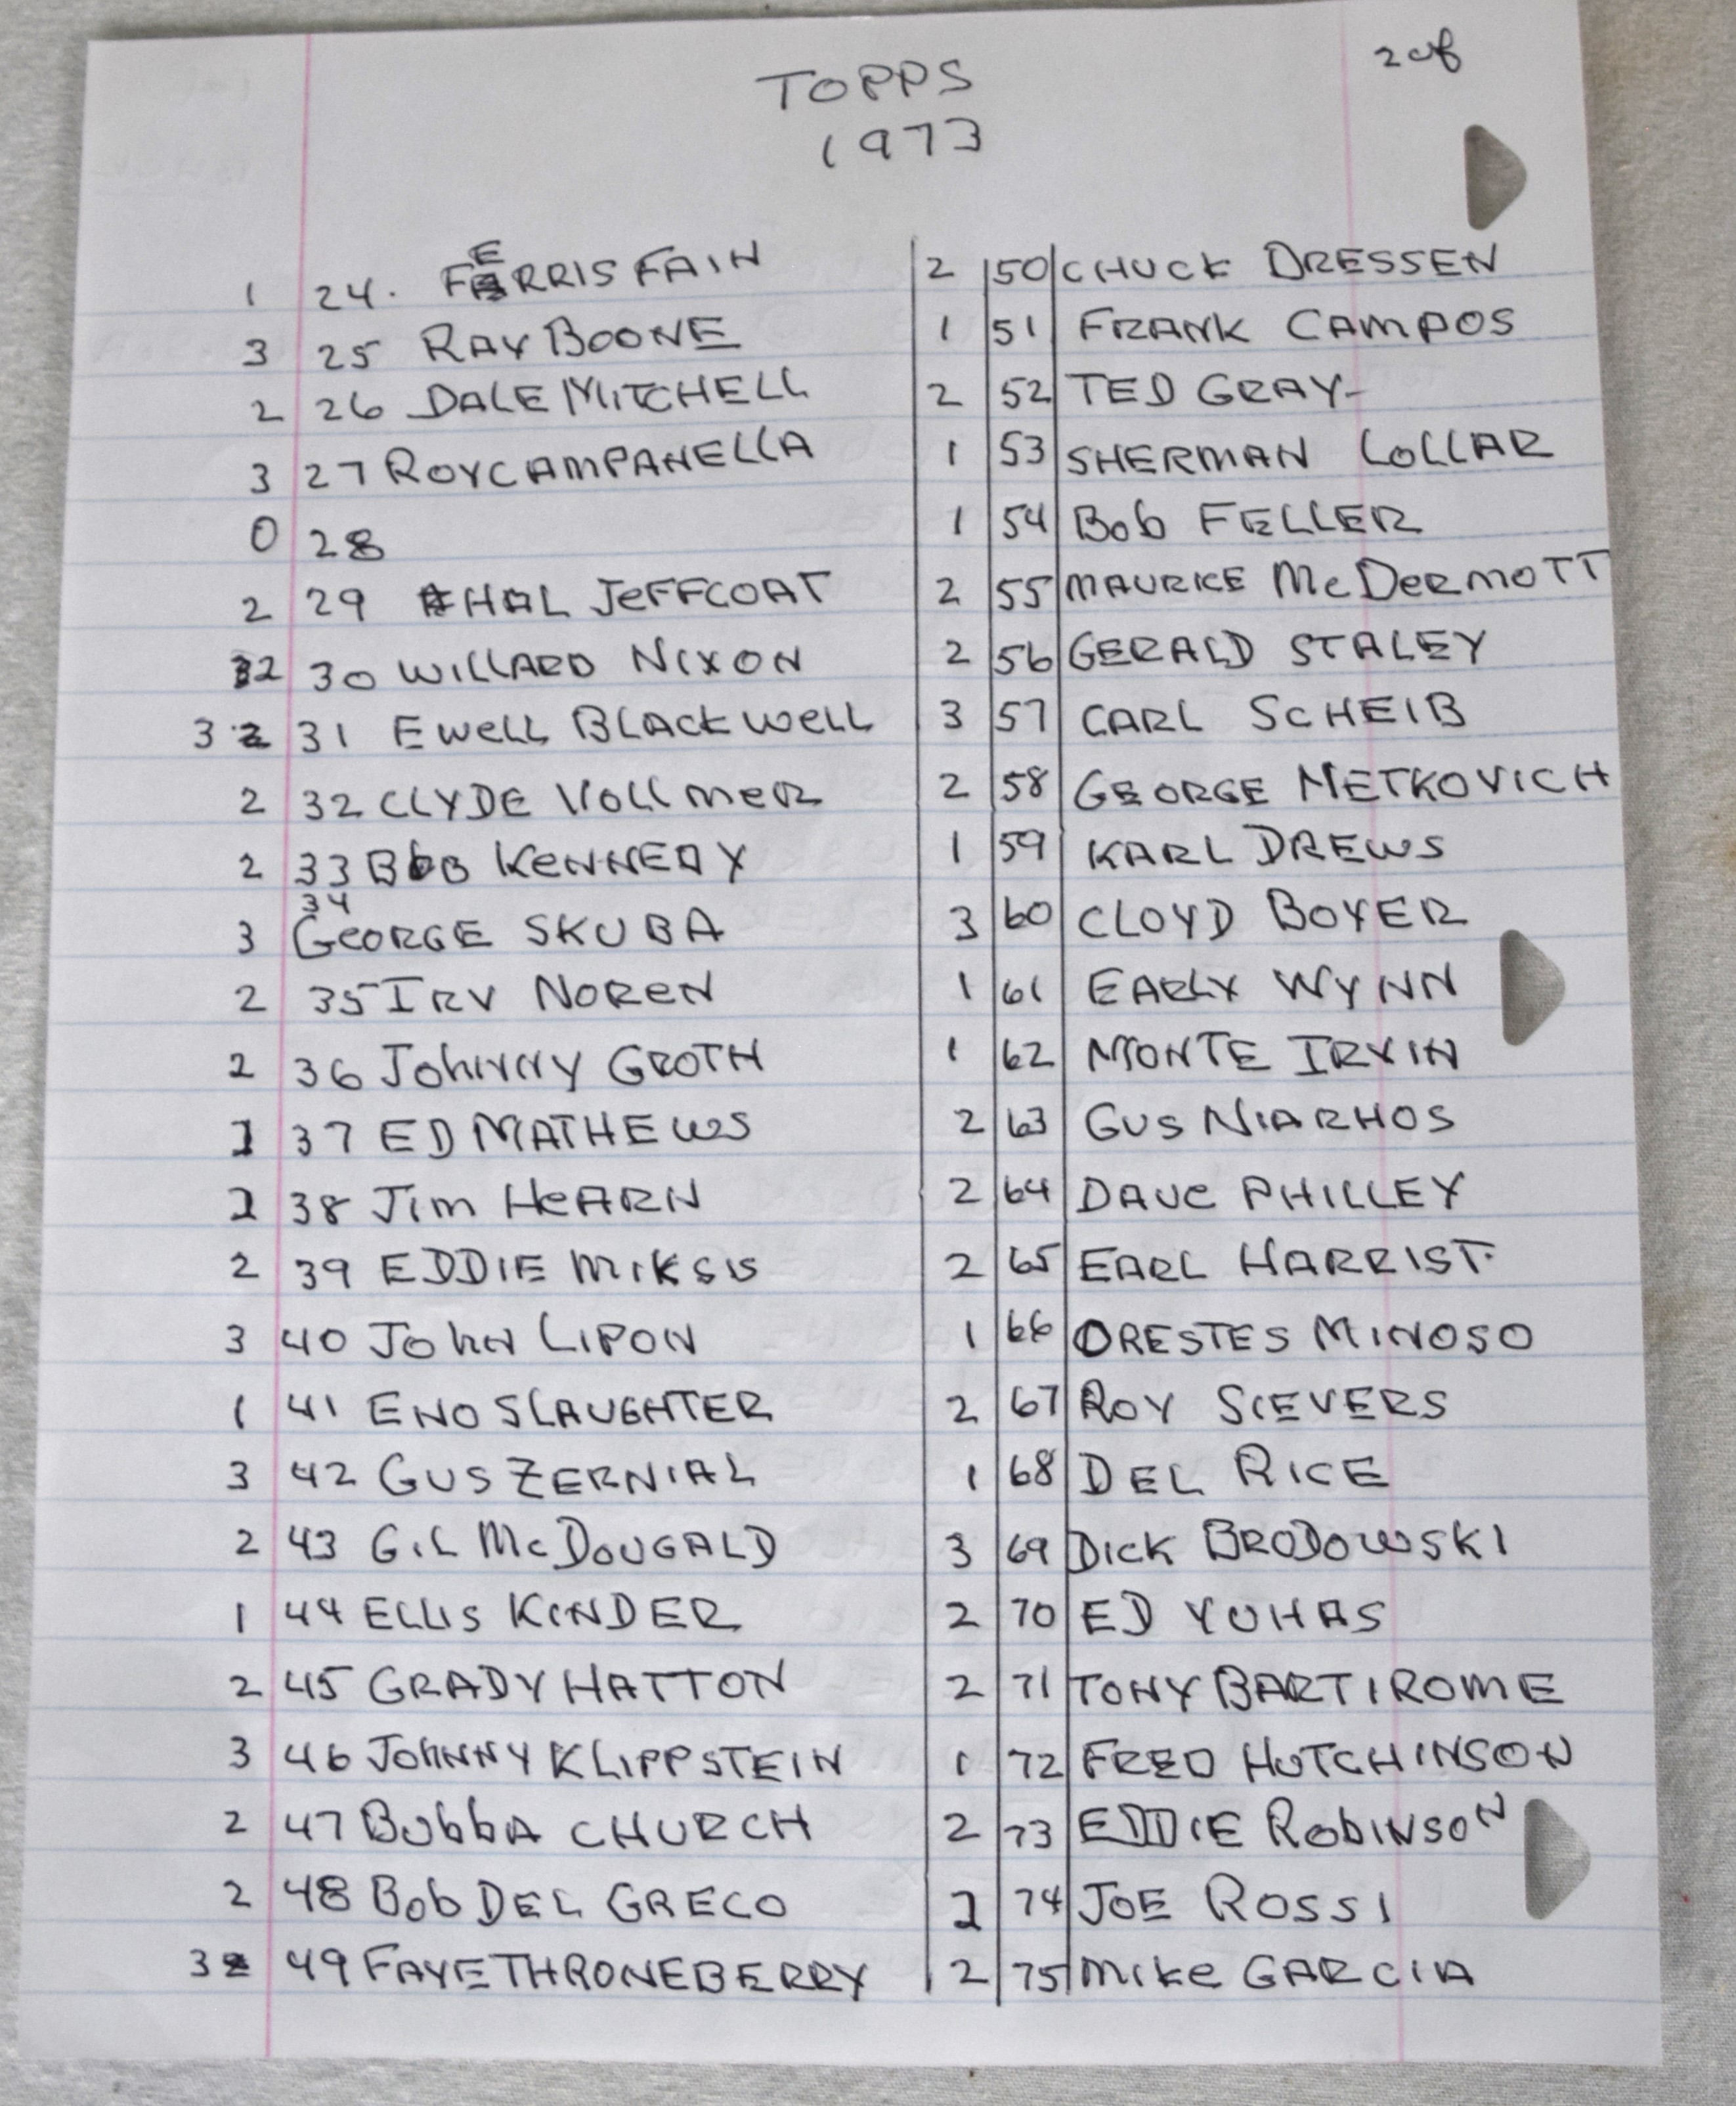 2 of
TOPPS
1973
1 24. FERRIS FAIN
3 25 RAY BOONE
2 26 DALE MITCHELL
3 27 ROY CAMPANELLA
0 28
2 29 HAL JEFFCOAT
2 30 WILLARD NIXON
3 31 EWELL BLACKWELL
2 32 CLYDE VOLLMER
2 33 BOB KENNEDY
3 34 GEORGE SKUBA
2 35 IRV NOREN
2 36 JOHNNY GROTH
1 37 ED MATHEWS
38 JIM HEARN
2 39 EDDIE MIKSIS
3 40 JOHN LIPON
1 41 ENO SLAUGHTER
3 42 GUS ZERNIAL
2 43 GIL McDOUGALD
1 44 ELLIS KINDER
2 45 GRADY HATTON
3 46 JOHNNY KLIPPSTEIN
2 47 BUBBA CHURCH
2 48 BOB DEL GRECO
3 49 FAYE THRONEBERRY
2 50 CHUCK DRESSEN
1 51 FRANK CAMPOS
2 52 TED GRAY
1 53 SHERMAN LOLLAR
1 54 BOB FELLER
2 55 MAURICE McDERMOTT
2 56 GERALD STALEY
3 57 CARL SCHEIB
2 58 GEORGE METKOVICH
1 59 KARL DREWS
3 60 CLOYD BOYER
1 61 EARLY WYNN
1 62 MONTE IRVIN
2 63 GUS NIARHOS
2 64 DAVE PHILLEY
2 65 EARL HARRIST.
1 66 ORESTES MINOSO
2 67 ROY SIEVERS
1 68 DEL RICE
3 69 DICK BRODOWSKI
2 70 ED YUHAS
2 71 TONY BARTIROME
1 72 FRED HUTCHINSON
2 73 EDDIE ROBINSON
74 JOE ROSSI
2 75 MIKE GARCIA